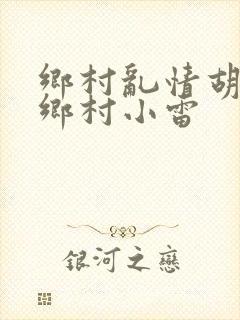 鄉村亂情胡
鄉村小雷
銀河之戀